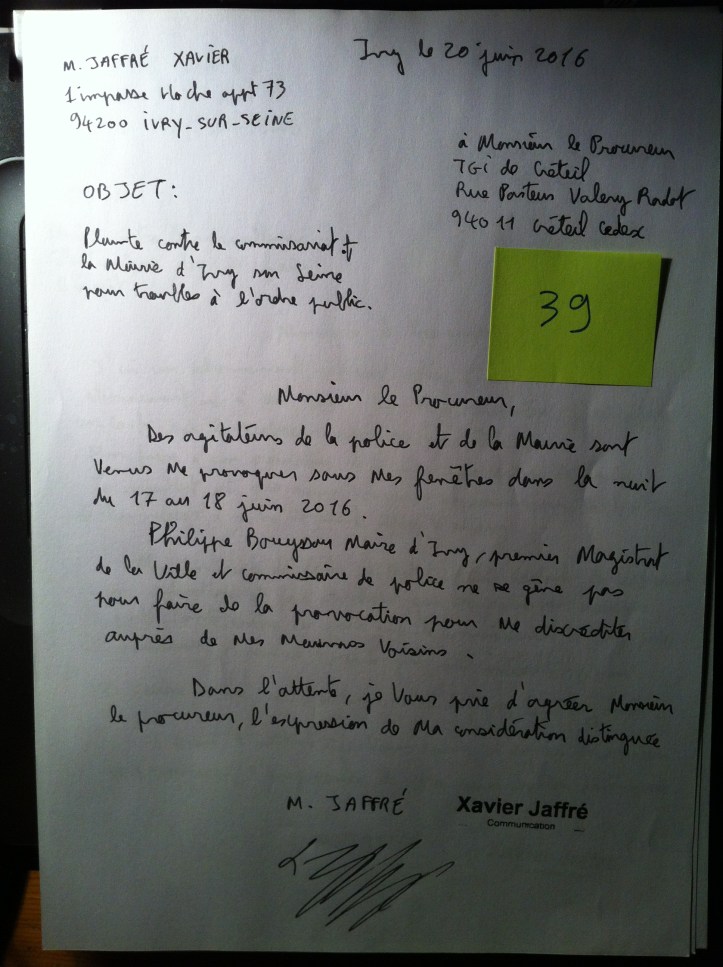 M. JAFFRÉ XAVIER
Ivry le 20 juin 2016
1 impasse Hoche appt 73
94200 IVRY-SUR-SEINE
à Monsieur le Procureur
TGI de Créteil
Rue Pasteur Valery Radot
94011 Créteil cedex
OBJET:
Plainte contre le commissariat et
la Mairie d'Ivry sur Seine
pour troubles à l'ordre public.
39
Monsieur le Procureur,
Des agitateurs de la police et de la Mairie sont
venus me provoquer sous mes fenêtres dans la nuit
du 17 au 18 juin 2016.
Philippe Bouyssou Maire d'Ivry, premier Magistrat
de la Ville et commissaire de police ne se gêne pas
pour faire de la provocation pour me discréditer
auprès de mes Voisins.
Dans l'attente, je Vous prie d'agréer Monsieur
le procureur, l'expression de Ma considération distinguée
M. JAFFRÉ
Xavier Jaffré
Communication